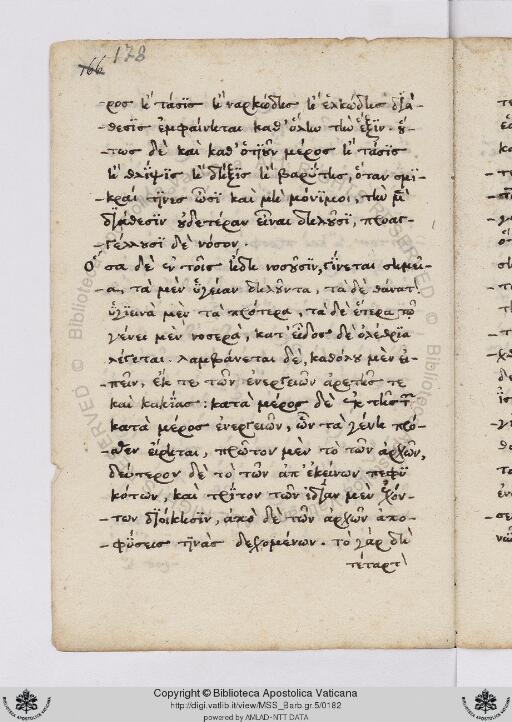 166 178
-ρος ἢ τάσις ἢ ναρκώδης ἢ ἑλκώδης διά-
-θεσις ἐμφαίνηται καθ' ὅλην τὴν ἕξιν. οὕ-
-τως δὲ καὶ καθ' ὁτιοῦν μέρος ἢ τάσις
ἢ θλίψις ἢ δῆξις ἢ βαρύτης, ὅταν σμι-
-κραί τινες ὦσι καὶ μὴ μόνιμοι, τὴν μὲν
διάθεσιν οὐδετέραν εἶναι δηλοῦσι, προαγ-
-γέλλουσι δὲ νόσον.
Ὅσα δὲ ἐν τοῖς ἤδη νοσοῦσιν, γίνεται σημεῖ-
-α, τὰ μὲν ὑγείαν δηλοῦντα, τὰ δὲ θάνατον
ὑγιεινὰ μὲν τὰ πρότερα, τὰ δὲ ἕτερα τῷ
γένει μὲν νοσερὰ, κατ' εἶδος δὲ ὀλέθρια
λέγεται. λαμβάνεται δὲ, καθόλου μὲν εἰ-
-πεῖν, ἔκ τε τῶν ἐνεργειῶν ἀρετῆς τε
καὶ κακίας: κατὰ μέρος δὲ ἐκ τῆς τῶν
κατὰ μέρος ἐνεργειῶν, ὧν τὰ γένη πρό-
-σθεν εἴρηται, πρῶτον μὲν τὸ τῶν ἀρχῶν,
δεύτερον δὲ τὸ τῶν ἀπ' ἐκείνων πεφυ-
κότων, καὶ τρίτον τῶν ἰδίαν μὲν ἐχόν-
-των διοίκησιν, ἀπὸ δὲ τῶν ἀρχῶν ἀπο-
-φύσεις τινὰς δεχομένων. τὸ γὰρ δὴ
τέταρτον
Copyright © Biblioteca Apostolica Vaticana
http://digi.vatlib.it/view/MSS_Barb.gr.5/0182
powered by AMLAD-NTT DATA